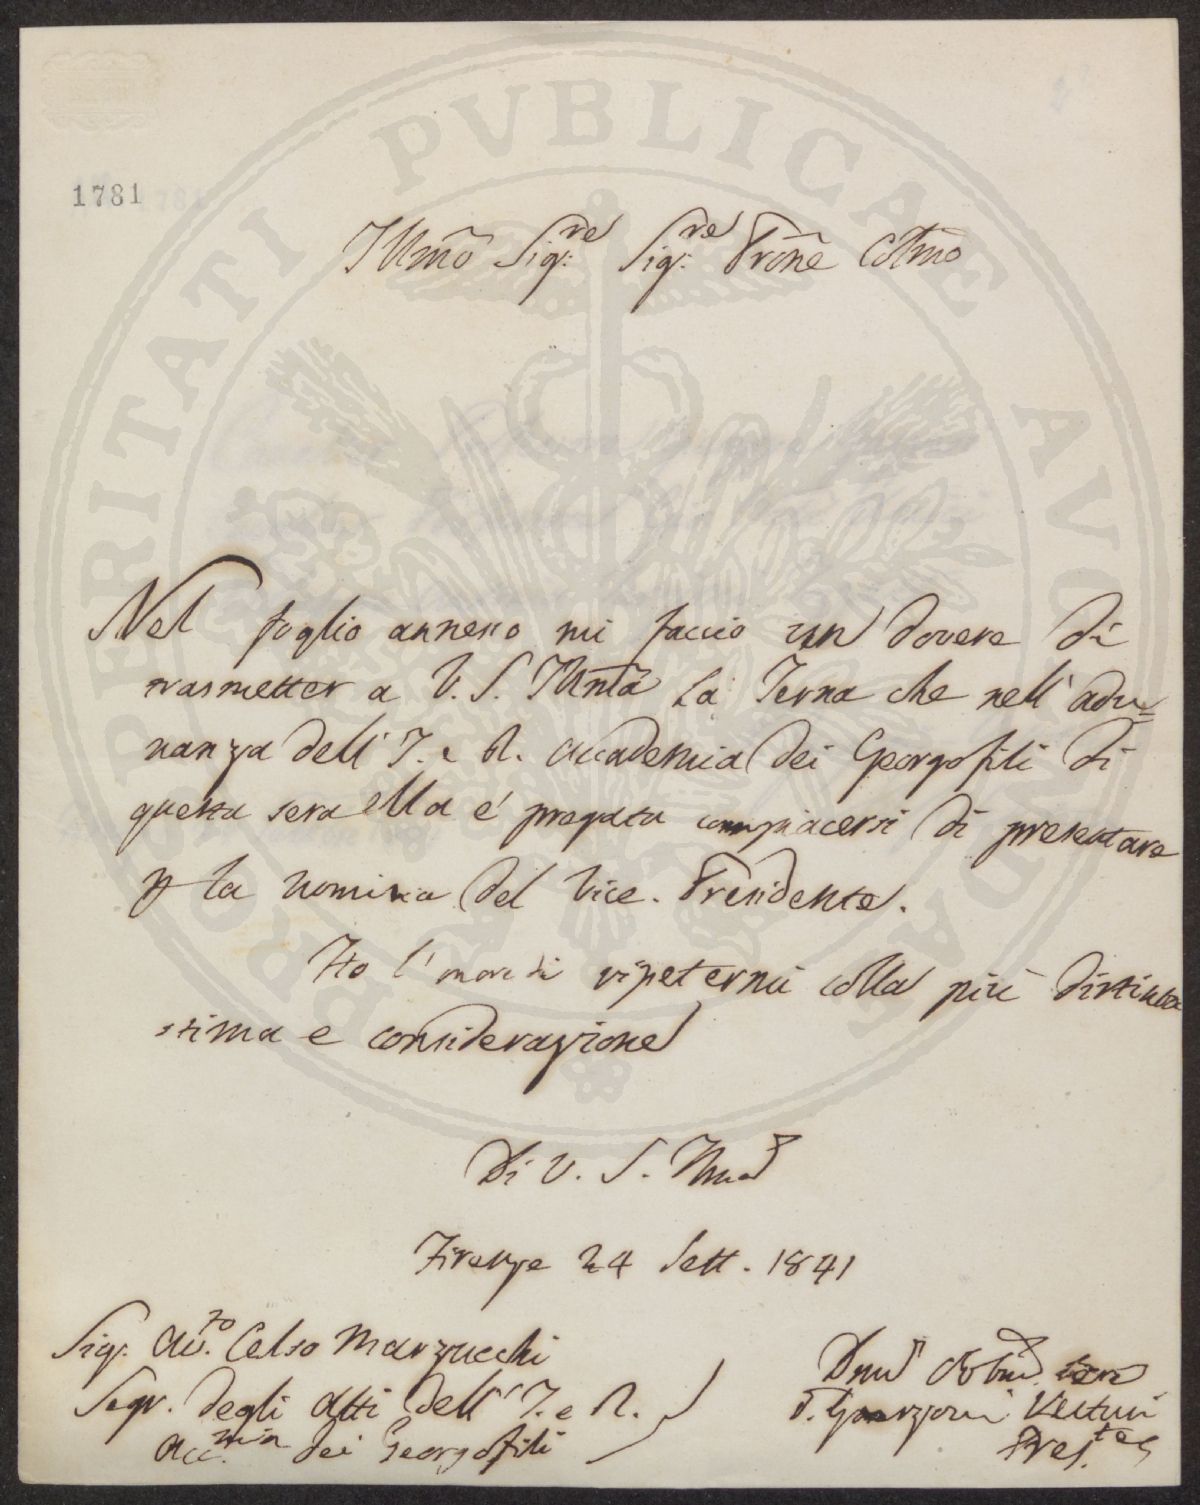 PROSPERITATI PVBLICAE AVGENDAE
1781
Illmõ Sig:re Sig:re Prõne Colmõ
Nel foglio annesso mi faccio un dovere di
trasmetter a V. S. Illmã la Terna che nell' adu=
nanza dell' I. e R. Accademia dei Georgofili di
questa sera ella é pregata compiacersi di presentare
p la nomina del Vice. Presidente.
Ho l'onore di ripetermi colla più distinta
stima e considerazione
Di V. S. Illma
Firenze 24 Sett. 1841
Sig: Avv.to Celso Marzucchi
Segr. degli Atti dell' I. e R.
Acc.mia dei Georgofili
Dmo Obbmo
P. Garzoni Venturi
Pres.te